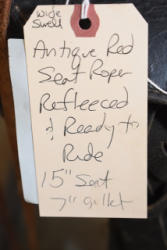 Wide
Swell
Antique Red
Seat Roper
Refleeced
& Ready to
Ride
15" Seat
7" Gullet